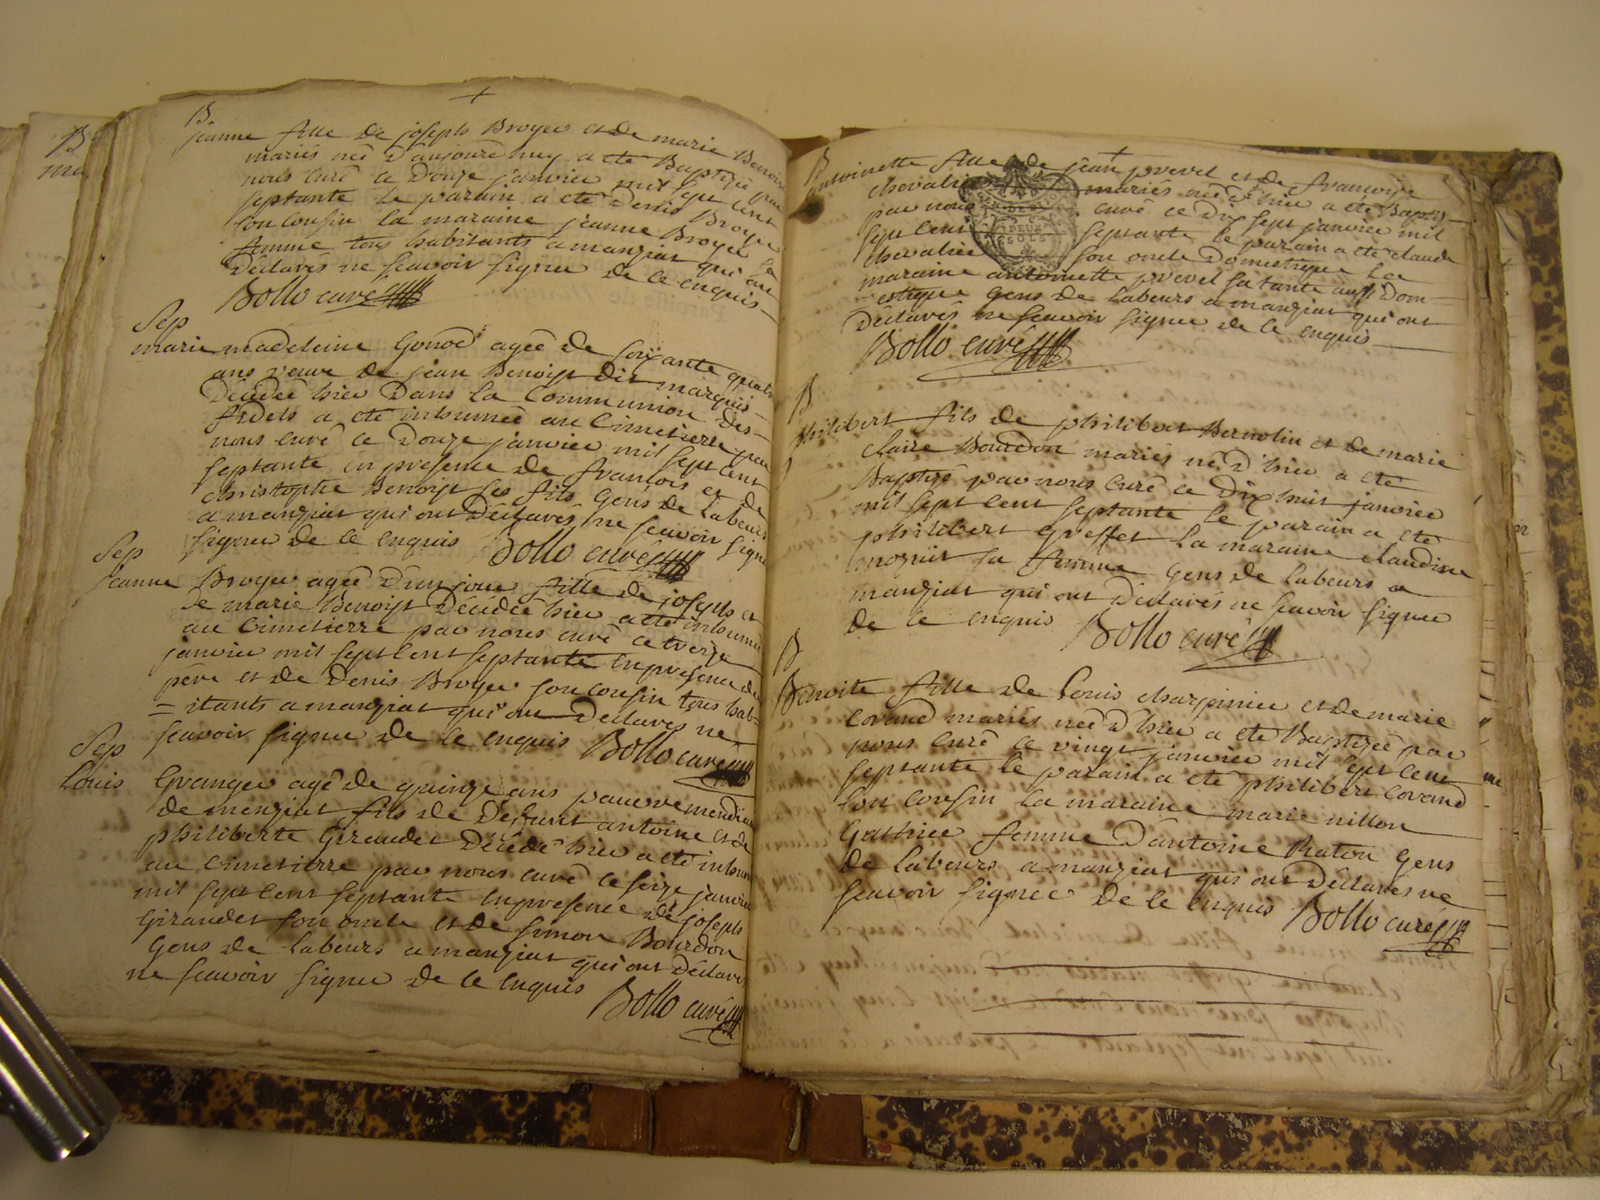 B
jeanne fille de joseph Broyer et de marie Benoist
mariés née d'aujourd'huy a eté Baptizée par
nous curé ce douze janvier mil sept cent
septante le parain a eté denis Broyer
son cousin la maraine jeanne Broyer sa
femme tous habitants a manziat qui ont
déclarés ne scavoir signer de ce enquis
Bollo curé
Sep
marie madeleine Gonod agée de soixante quatre
ans veuve de jean Benoist dit marquis
décédée hier dans la Communion des
fidels a eté inhumée au Cimetierre par
nous curé ce douze janvier mil sept cent
septante en presence de francois et de
christophe Benoist ses fils gens de Labeurs
a manziat qui ont déclarés ne scavoir signer
signer de ce enquis Bollo curé
Sep
jeanne Broyer agée d'un jour fille de joseph et
de marie Benoist décédée hier a eté inhumée
au Cimetierre par nous curé ce treize
janvier mil sept cent septante en presence du
pére et de Denis Broyer son cousin tous hab=
=itants a manziat qui ont déclarés ne
scavoir signer de ce enquis Bollo curé
Sep
Louis Granger agé de quinze ans pauvre mendiant
de manziat fils de deffunt antoine et de
philiberte Giraudet décédé hier a eté inhumé
au Cimetierre par nous curé ce seize janvier
mil sept cent septante en presence de joseph
Giraudet son oncle et de simon Bourdon
gens de Labeurs a manziat qui ont déclarés
ne scavoir signer de ce enquis Bollo curé
B
antoinette fille de jean prevel et de francoise
chevalier mariés née d'hier a eté Baptiz
par nous curé ce dix sept janvier mil
sept cent septante le parain a eté claude
chevalier son oncle domestique La
maraine antoinette prevel sa tante aussi dom
estique gens de Labeurs a manziat qui ont
déclarés ne scavoir signer de ce enquis
Bollo curé
B
philibert fils de philibert Bernolin et de marie
claire Bourdon mariés né d'hier a eté
Baptizé par nous curé ce dix huit janvier
mil sept cent septante le parain a eté
philibert greffet La maraine claudine
sa femme gens de Labeurs a
manziat qui ont déclarés ne scavoir signer
de ce enquis Bollo curé
B
Benoite fille de Louis charpinier et de marie
Corand mariés née d'hier a eté Baptizée par
nous curé ce vingt janvier mil sept cent
septante le parain a eté philibert Corand
son cousin La maraine marie nillon
femme d'antoine Raton gens
de Labeurs a manziat qui ont déclarés ne
scavoir signer de ce enquis Bollo curé